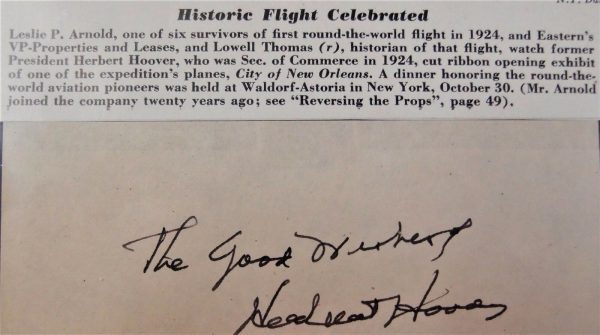 Historic Flight Celebrated
Leslie P. Arnold, one of six survivors of first round-the-world flight in 1924, and Eastern's
VP-Properties and Leases, and Lowell Thomas (r), historian of that flight, watch former
President Herbert Hoover, who was Sec. of Commerce in 1924, cut ribbon opening exhibit
of one of the expedition's planes, City of New Orleans. A dinner honoring the round-the-
world aviation pioneers was held at Waldorf-Astoria in New York, October 30. (Mr. Arnold
joined the company twenty years ago; see "Reversing the Props", page 49).
The Good Wishes of
Herbert Hoover